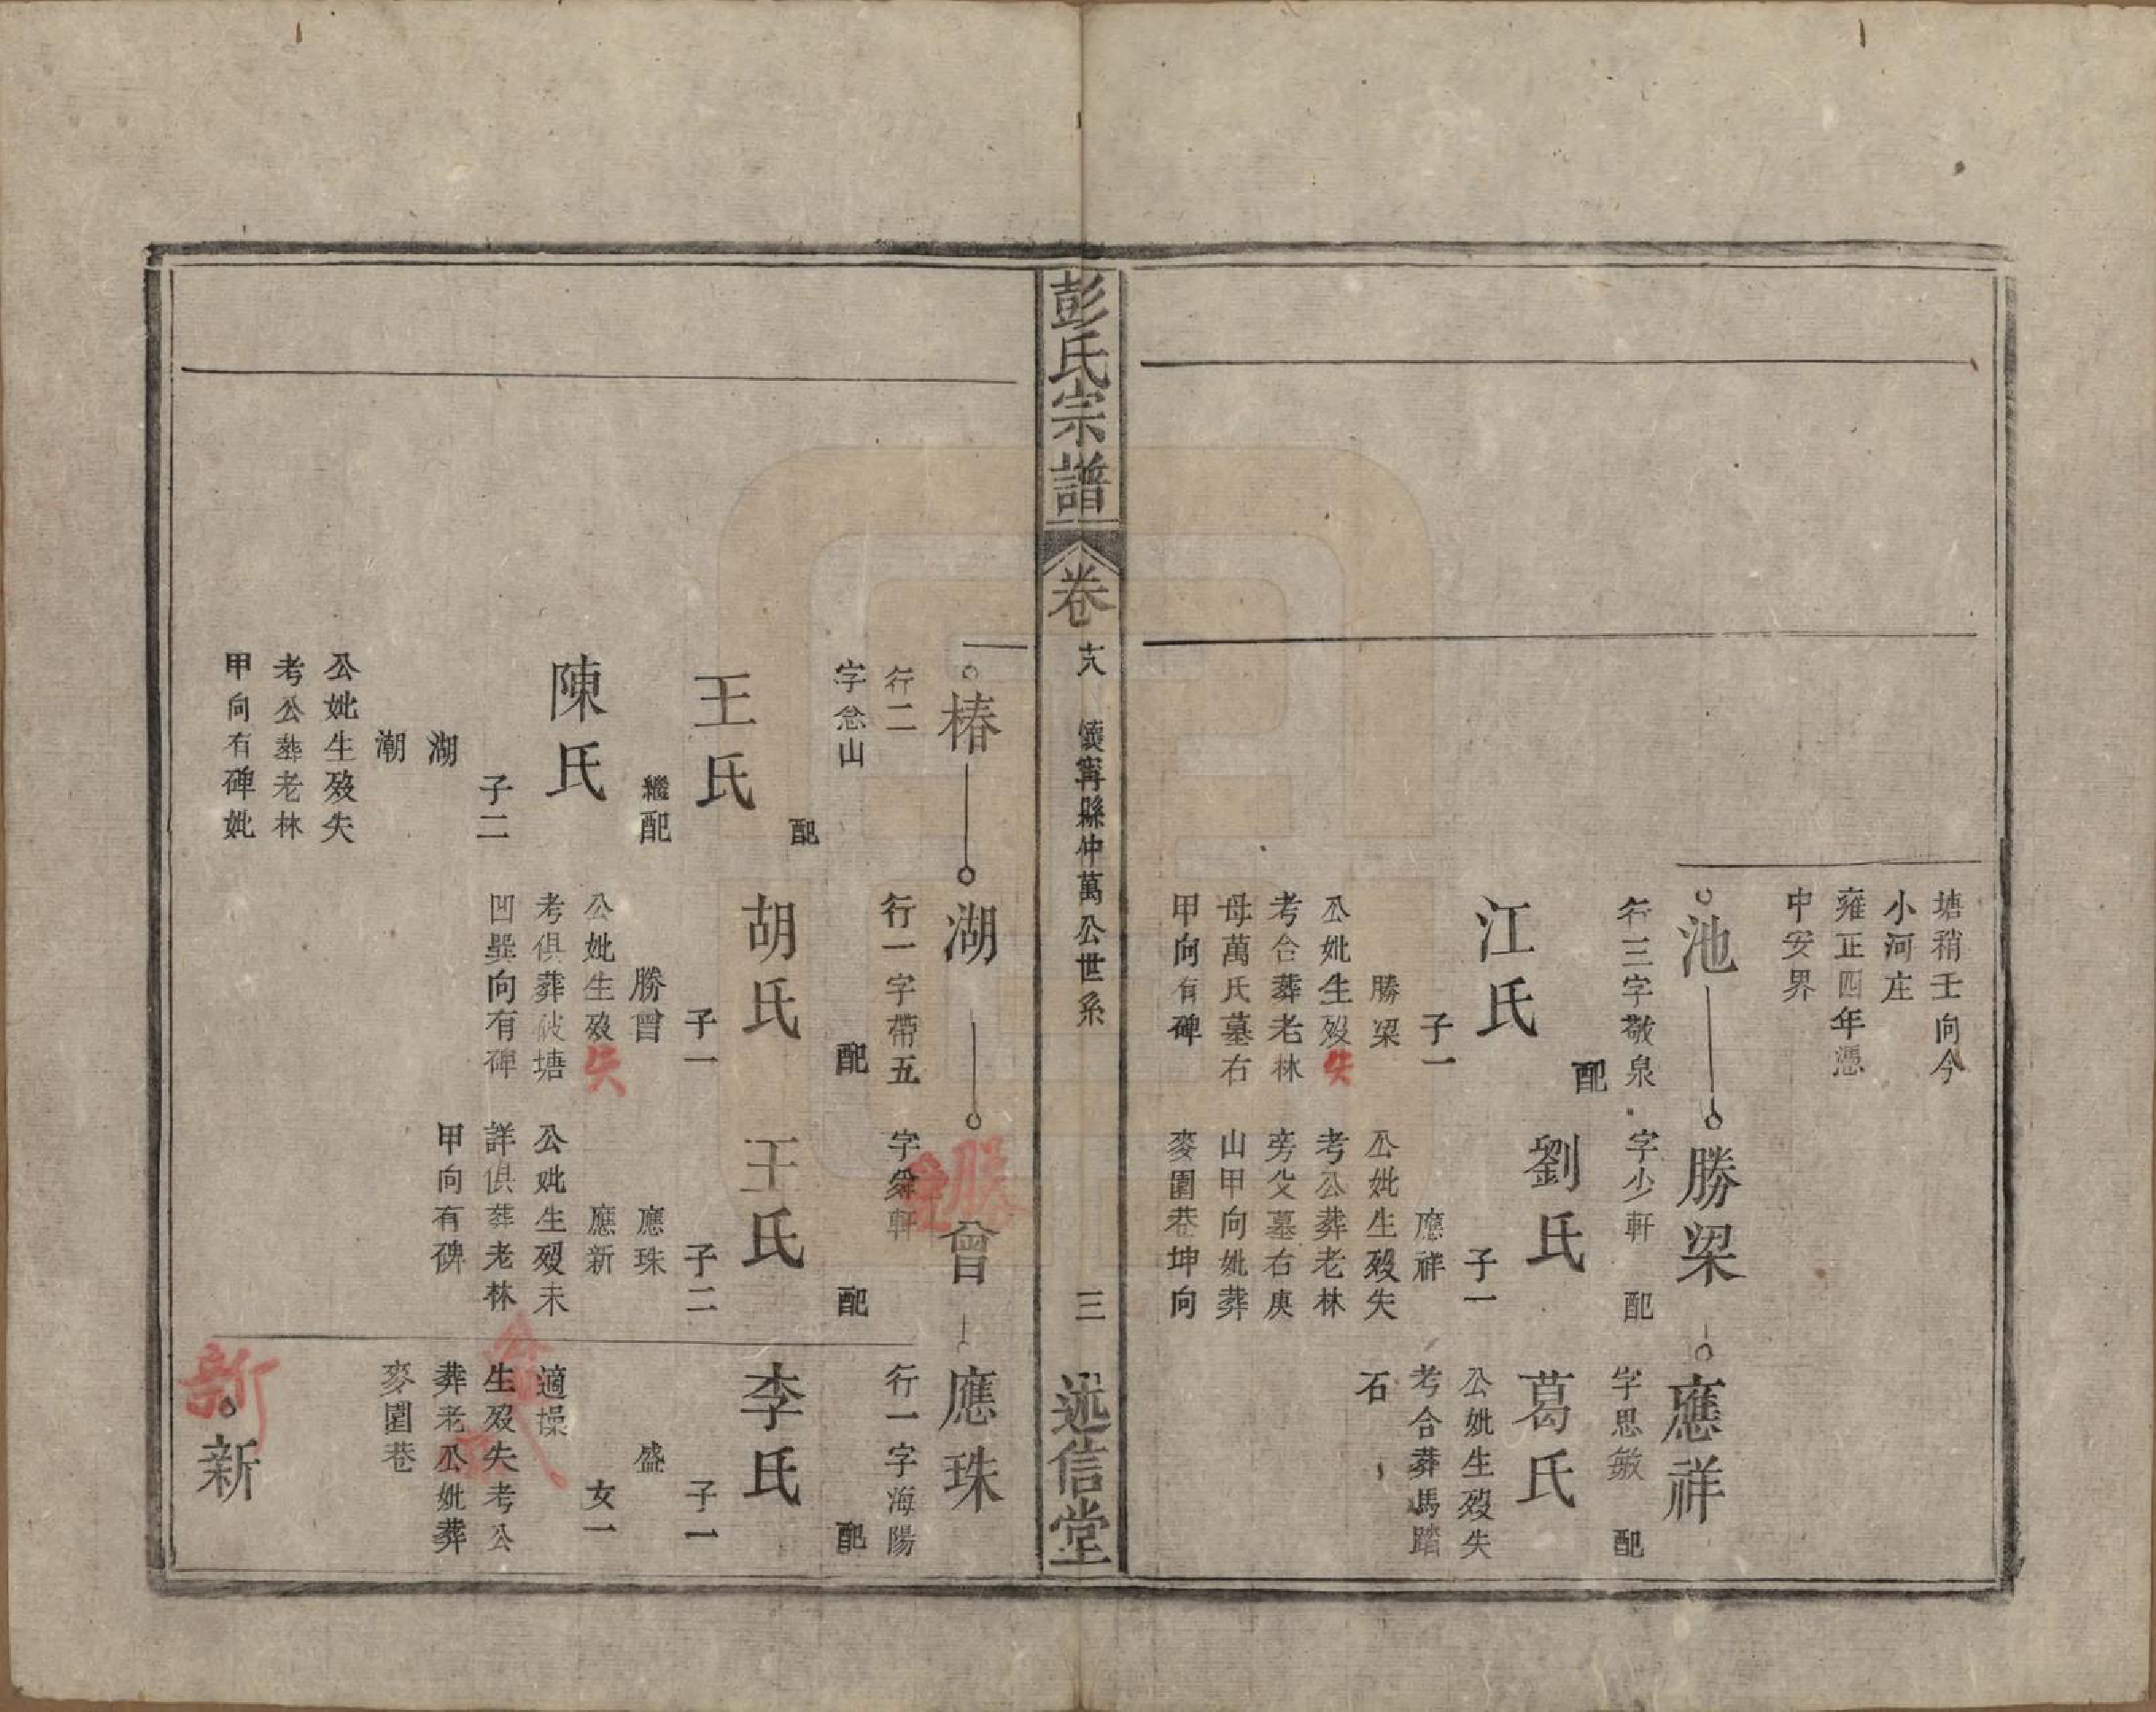 塘稍壬向今
小河庄
雍正四年憑
中安界
池
行三字敬泉
配
江氏
子一
勝梁
公妣生殁失
考合葬老林
母萬氏墓右
甲向有碑
勝梁
字少軒
配
劉氏
子一
應祥
公妣生殁失
考公葬老林
旁父墓右庚
山甲向妣葬
麥園巷坤向
應祥
字思敏
配
葛氏
公妣生殁失
考合葬馬踏
石
彭氏宗譜
卷
六
懷寧縣仲萬公世系
三
述信堂
椿
行二
字
山
配
王氏
繼配
陳氏
子二
湖
潮
公妣生殁失
考公葬老林
甲向有碑妣
湖
行一字帶五
配
胡氏
子一
勝曾
公妣生殁失
考俱葬破塘
凹巽向有碑
勝
曾
字
軒
配
王氏
子二
應珠
應新
公妣生殁未
詳俱葬老林
甲向有碑
應珠
行一字海陽
配
李氏
子一
盛
女一
適操
生殁失考公
葬老公妣葬
麥園巷
新
新